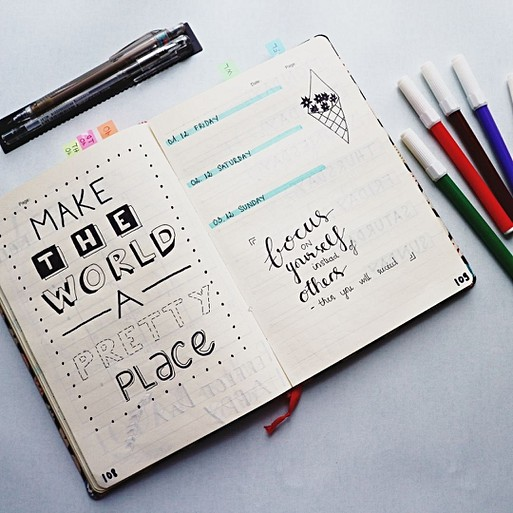 Page:
MAKE
THE
WORLD
A
PRETTY
PLACE
108
Date:
Page:
01.12. FRIDAY
02.12. SATURDAY
03.12. SUNDAY
focus
on
yourself
instead of
others
- then you will succeed
109